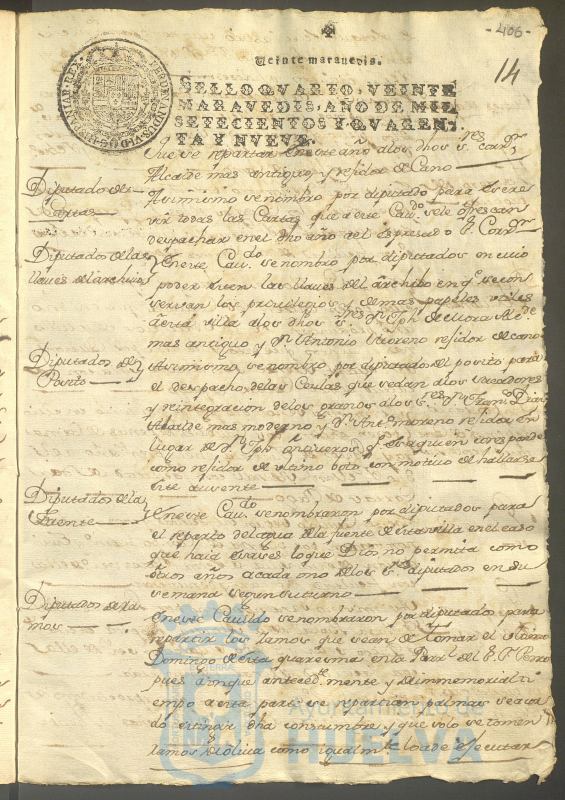 -406-
14
Veinte maravedis.
SELLO QVARTO, VEINTE
MARAVEDIS, AÑO DE MIL
SETECIENTOS Y QVAREN,
TA Y NUEVE.
que se repartan en este año a los dhos s.res Corr.or
Alcalde mas antiguo, y rexidor de Cano
Diputados de
Cartas
Asimismo se nombro por diputado para
todas las Cartas que a este Cau.do se le ofrescan
despachar en el dho año al expresado S.r Corr.or
Diputados de las
llaves del archivo
En este Cau.do se nombro por diputados en cuio
poder esten las llaves del archibo en q.e se con
servan los privilegios y demas papeles utiles
a esta villa a los dhos s.res D.n Jph. de Mora Alc.de
mas antiguo y D.n Antonio Moreno rexidor de cano
Diputados del
Posito
Asimismo se nombro por diputados del posito para
el despacho de las Cedulas que se dan a los
y reintegracion de los granos a los s.res D.n Fran.co Diaz
Alcalde mas moderno y D.n Ant.o moreno rexidor en
lugar de D.n Jph q.e es aquien corresponde
como rexidor de ultimo boto con motivo de hallarse
este ausente
Diputados de la
fuente
En este Cau.do se nombraron por diputados para
el reparto del agua de la fuente de esta villa en el caso
que haia escases lo que Dios no permita como
otros años a cada uno de los s.res diputados en su
semana segun su turno
Diputados de Ra
mos
En este Cauildo se nombraron por diputados para
repartir los ramos que sean de tomar el ultimo
Domingo de esta quaresma en la Parr.l del S.r S. Pedro
pues aunque antecedente mente y de immemorial ti
empo a esta parte se repartian palmas se aca
do extinguir dha consumbre y que solo se tomen
ramos de oliva como igualm.te lo a de executar
Ayuntamiento de
HUELVA